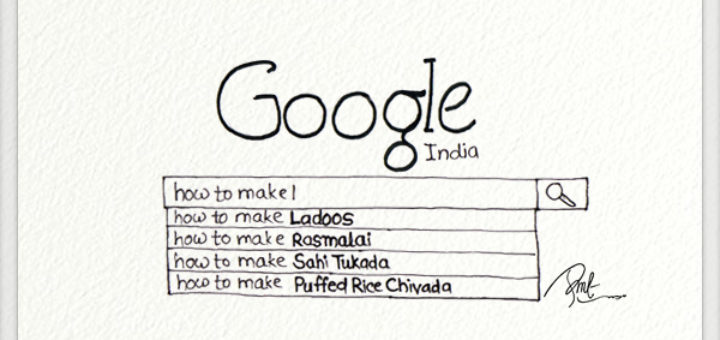 Google
India
how to make
how to make Ladoos
how to make Rasmalai
how to make Sahi Tukada
how to make Puffed Rice Chivada